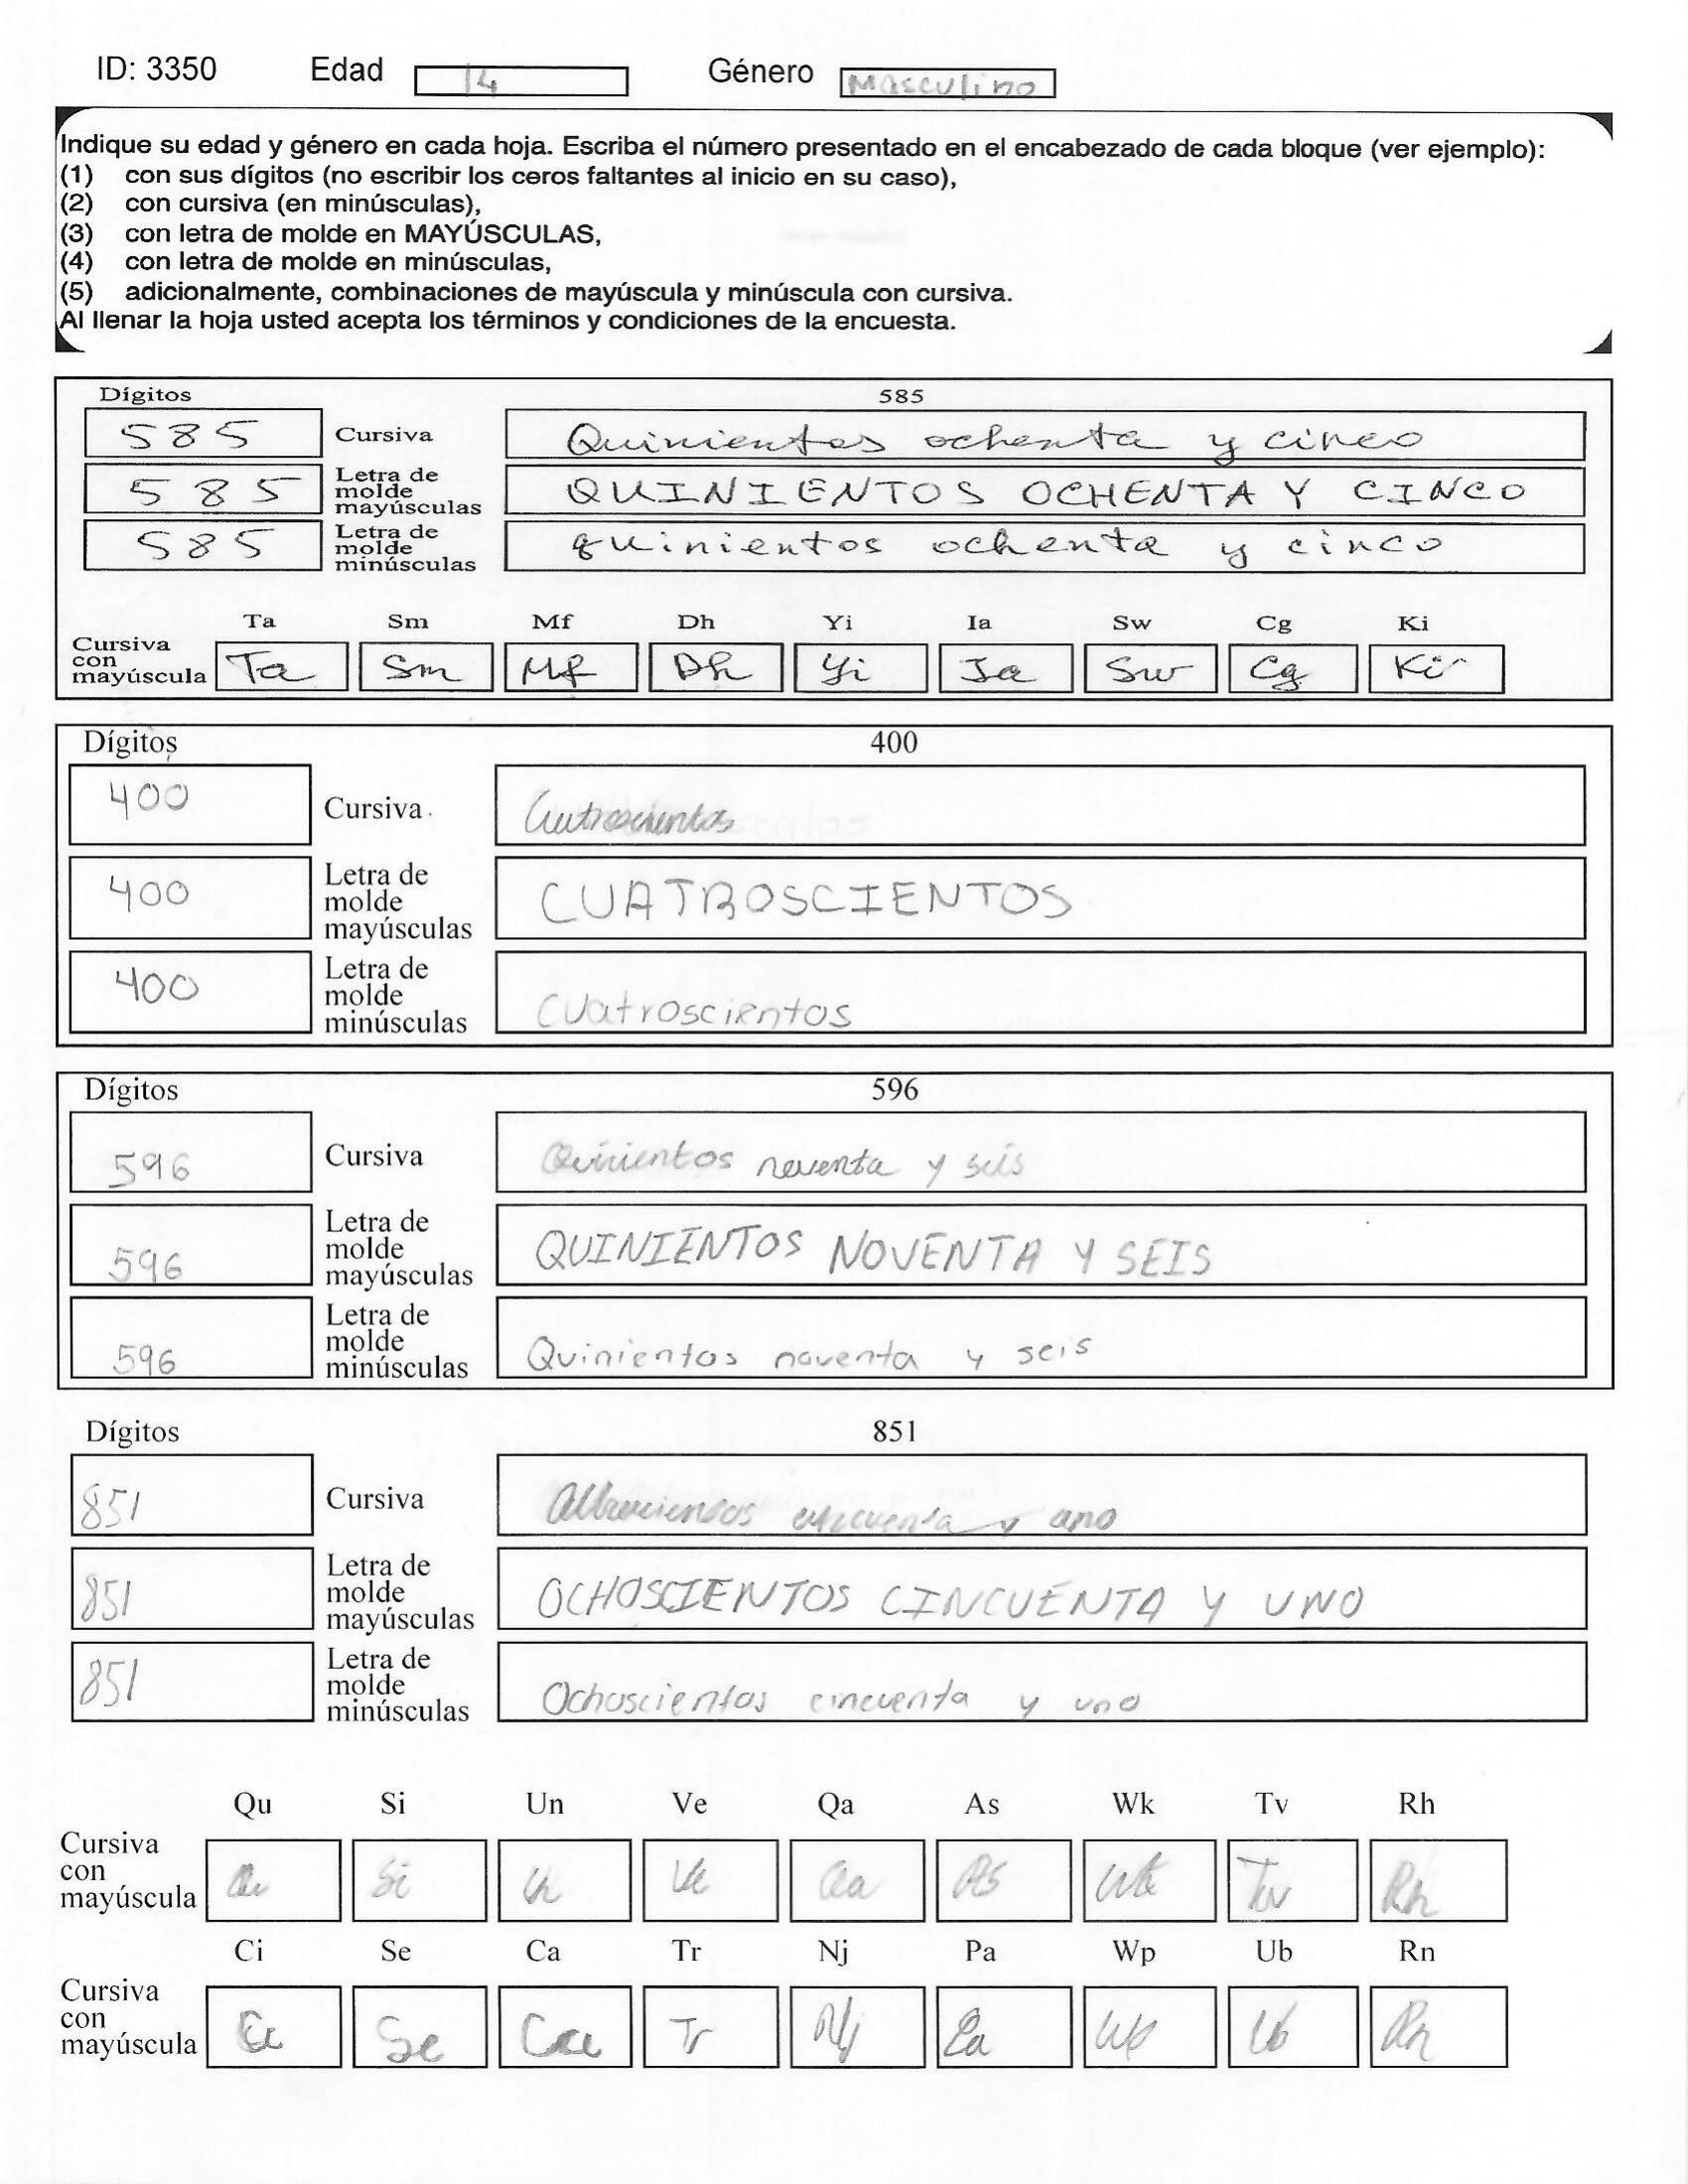 ID: 3350 Edad 14 Género Masculino
Indique su edad y género en cada hoja. Escriba el número presentado en el encabezado de cada bloque (ver ejemplo):
(1) con sus dígitos (no escribir los ceros faltantes al inicio en su caso),
(2) con cursiva (en minúsculas),
(3) con letra de molde en MAYÚSCULAS,
(4) con letra de molde en minúsculas,
(5) adicionalmente, combinaciones de mayúscula y minúscula con cursiva.
Al llenar la hoja usted acepta los términos y condiciones de la encuesta.
Dígitos 585
585 Cursiva Quinientos ochenta y cinco
585 Letra de molde mayúsculas QUINIENTOS OCHENTA Y CINCO
585 Letra de molde minúsculas quinientos ochenta y cinco
Ta Sm Mf Dh Yi Ia Sw Cg Ki
Cursiva con mayúscula Ta Sm Mf Dh Yi Ia Sw Cg Ki
Dígitos 400
400 Cursiva
400 Letra de molde mayúsculas CUATROSCIENTOS
400 Letra de molde minúsculas Cuatroscientos
Dígitos 596
596 Cursiva Quinientos noventa y seis
596 Letra de molde mayúsculas QUINIENTOS NOVENTA Y SEIS
596 Letra de molde minúsculas Quinientos noventa y seis
Dígitos 851
851 Cursiva y
851 Letra de molde mayúsculas OCHOSCIENTOS CINCUENTA Y UNO
851 Letra de molde minúsculas Ochoscientos cincuenta y uno
Qu Si Un Ve Qa As Wk Tv Rh
Cursiva con mayúscula Qu Si Un Ve Qa As Wk Tv Rh
Ci Se Ca Tr Nj Pa Wp Ub Rn
Cursiva con mayúscula Ci Se Ca Tr Nj Pa Wp Ub Rn